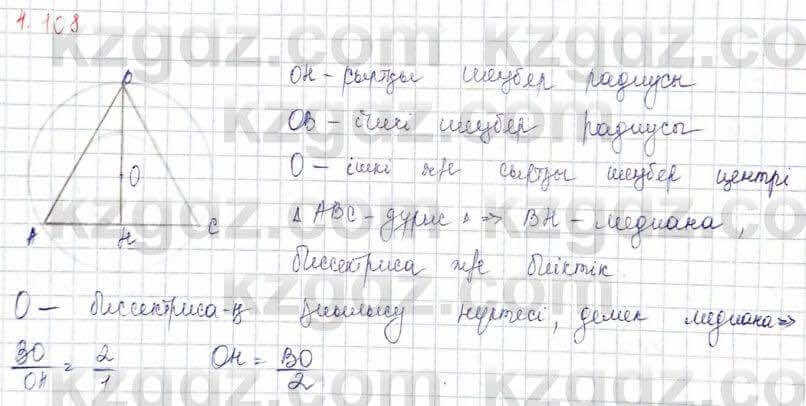 4.108
B
O
A H C
OH - сыртқы шеңбер радиусы
OB - ішкі шеңбер радиусы
O - ішкі ж/е сыртқы шеңбер центрі
△ ABC - дұрыс △ => BH - медиана,
биссектриса ж/е биіктік
O - биссектриса-ң қиылысу нүктесі, демек медиана =>
BO/OH = 2/1 OH = BO/2
kzgdz.com